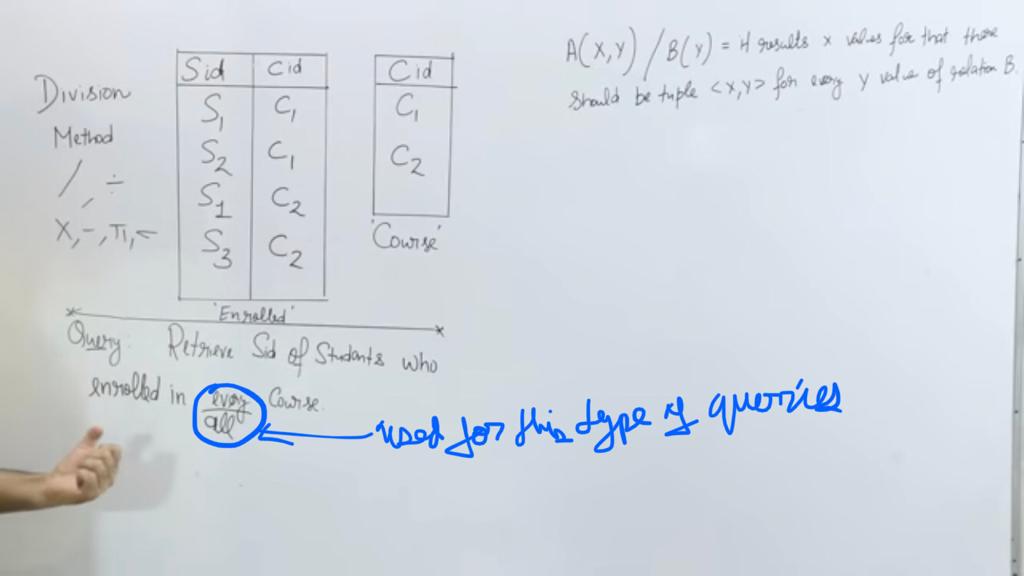 Division
Method
/, ÷
X, -, π, ←
Sid Cid
S1 C1
S2 C1
S1 C2
S3 C2
'Enrolled'
Cid
C1
C2
'Course'
A(X,Y) / B(Y) = it results x values for that there
should be tuple <X,Y> for every y value of relation B.
Query: Retrieve Sid of Students who
enrolled in every Course.
all
used for this type of querries